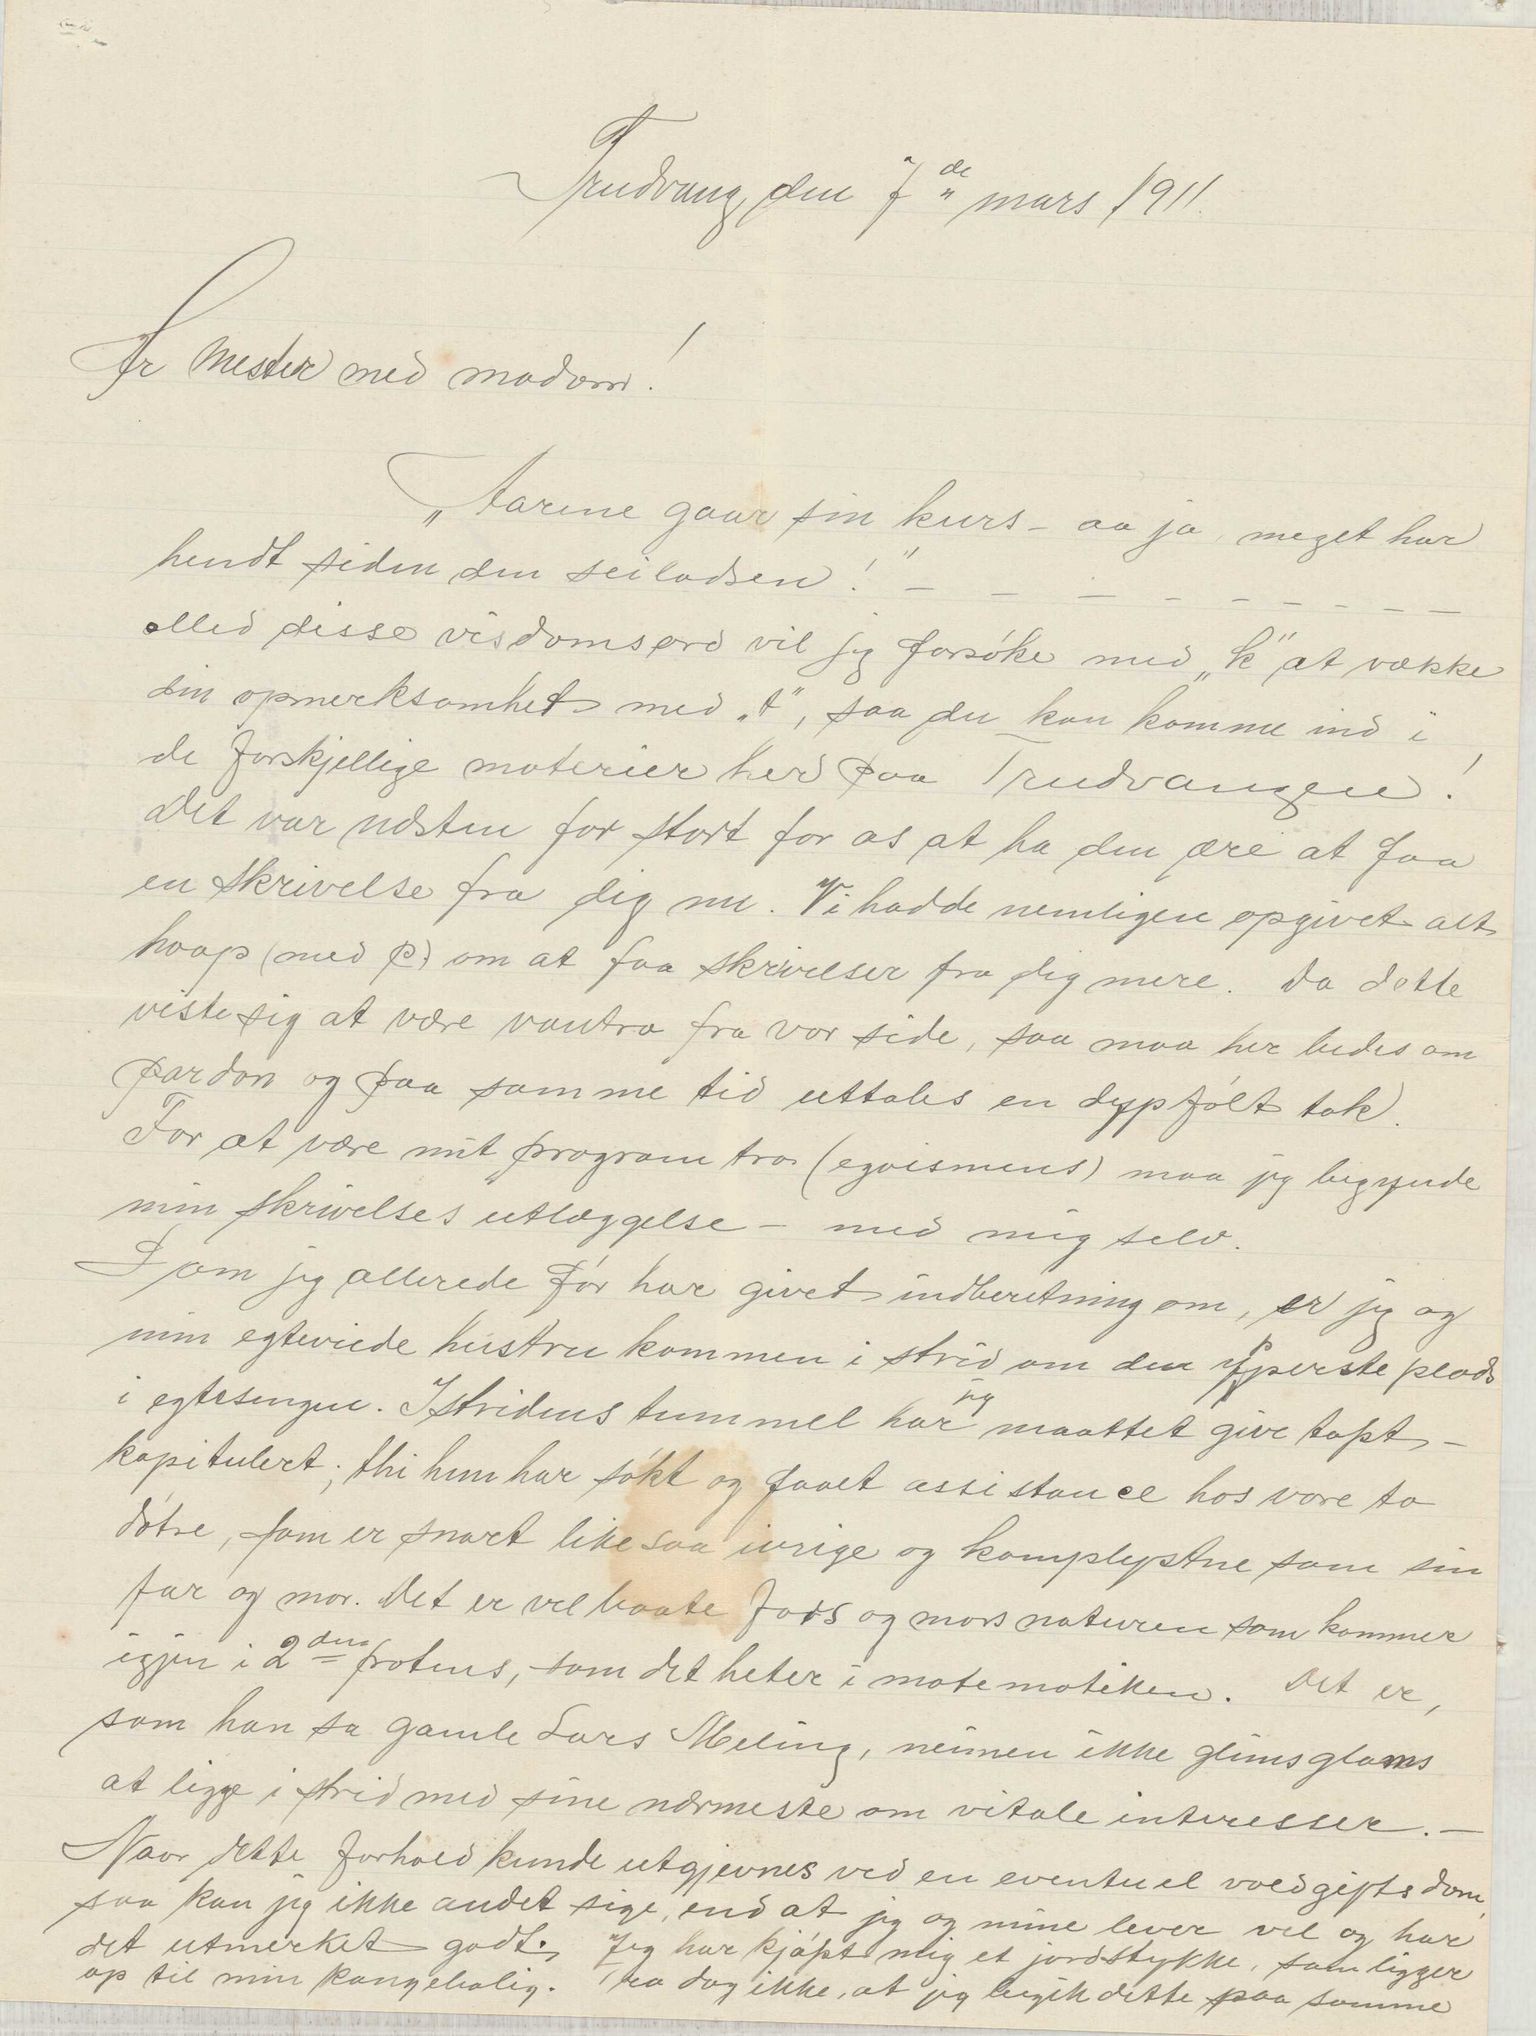 Trudvang, den 7de mars 1911.
Hr Mester med madam!
„Aarene gaar sin kurs – aa ja, meget har
hendt siden den seiladsen!" – – – – – – – – –
Med disse visdomsord vil jeg forsøke med „k" at vække
din opmerksomhet med „t", saa du kan komme ind i
de forskjellige materier her paa Trudvangen!
Det var næsten for stort for os at ha den ære at faa
en skrivelse fra dig nu. Vi hadde nemligen opgivet alt
haap (med p) om at faa skrivelser fra dig mere. Da dette
viste sig at være vantro fra vor side, saa maa her bedes om
pardon og paa samme tid uttales en dypfølt tak.
For at være mit program tro (egoismens) maa jeg begynde
min skrivelses utlæggelse – med mig selv.
Som jeg allerede før har givet indberetning om, er jeg og
min egteviede hustru kommen i strid om den ypperste plads
i egtesengen. I stridens tummel har jeg maattet give tapt –
kapitulert; thi hun har søkt og faaet assistance hos vore to
døtre, som er snart like saa ivrige og kamplystne som sin
far og mor. Det er vel baate fars og mors naturen som kommer
igjen i 2den potens, som det heter i matematikken. Det er,
som han sa gamle Lars Meling, neimen ikke glimsglams
at ligge i strid med sine nærmeste om vitale interesser. –
Naar dette forhold kunde utgjevnes ved en eventuel voldgiftsdom,
saa kan jeg ikke andet sige, end at jeg og mine lever vel og har
det utmerket godt. Jeg har kjøpt mig et jordstykke, som ligger
op til min kongebolig. Tro dog ikke, at jeg begik dette paa samme